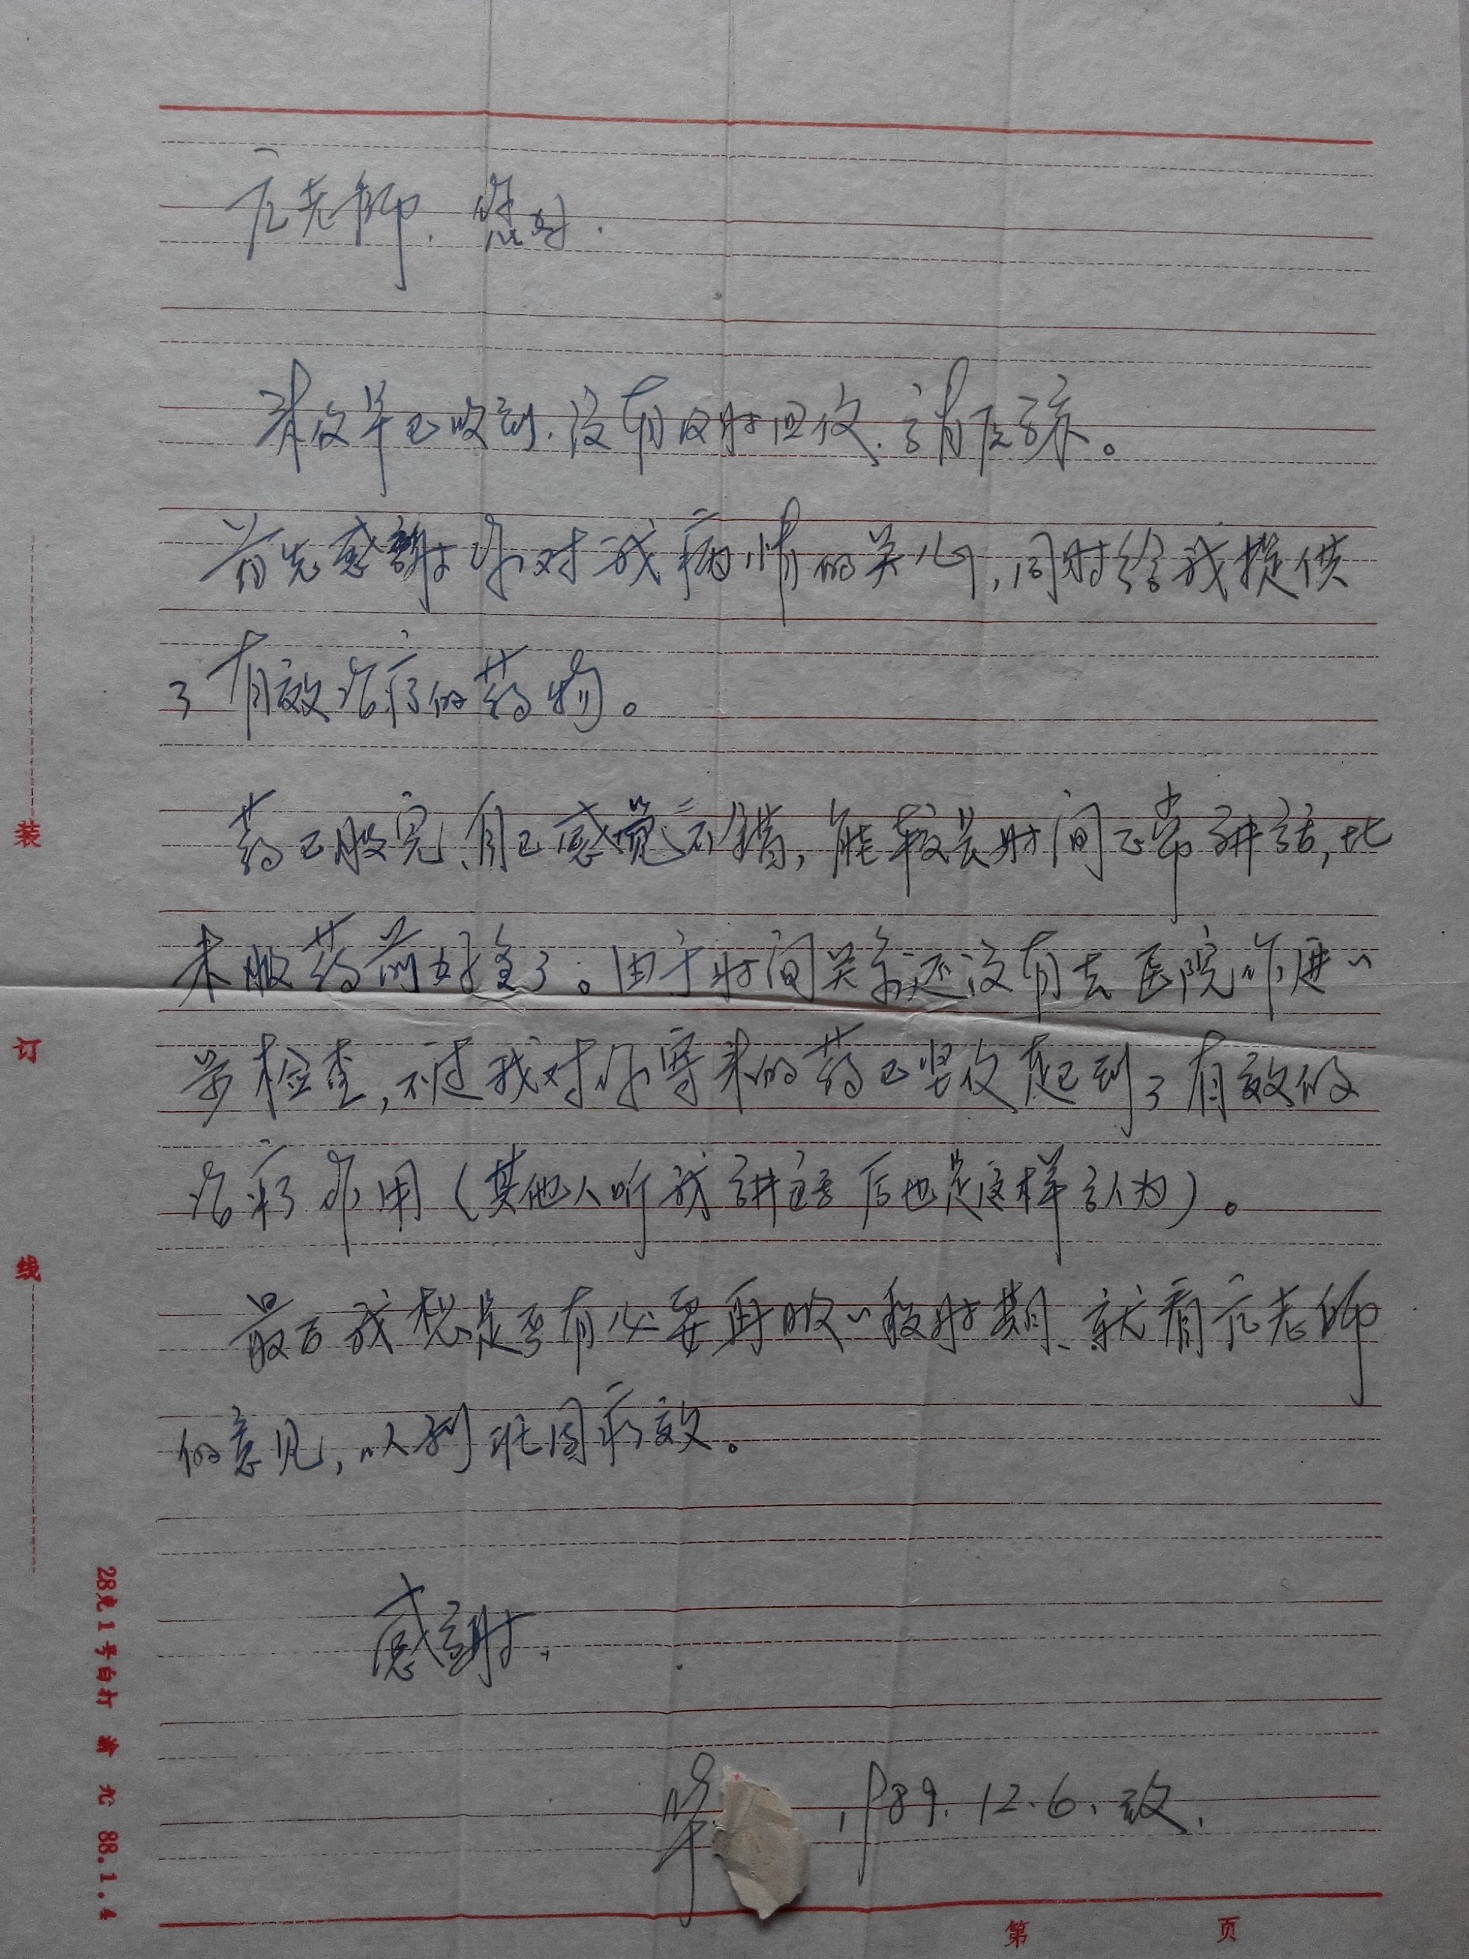 老师.您好.
来信早已收到.没有及时回信.请原谅。
首先感謝你对我病情的关心,同时给我提供
了有效治疗的药物。
药已服完、自己感觉不错,能较长时间正常讲话,比
未服药前好多了。由于时间关系还没有去医院作进一
步检查,不过我对你寄来的药已坚信起到了有效的
治疗作用(其他人听我讲话后也是这样认为)。
最后我想是否有必要再服一段时期、就看老师
的意见,以利巩固疗效。
感謝.
1989.12.6.致.
装
订
线
28克1号白打 88.1.4
第 页